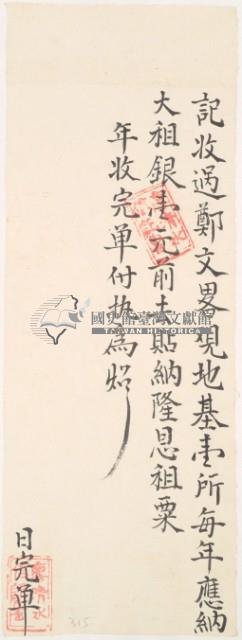 記收過鄭文畧現地基壹所每年應納
大祖銀壹元前去貼納隆恩祖粟
年收完单付执為炤
日完单
國史館臺灣文獻館
TAIWAN HISTORICA
315